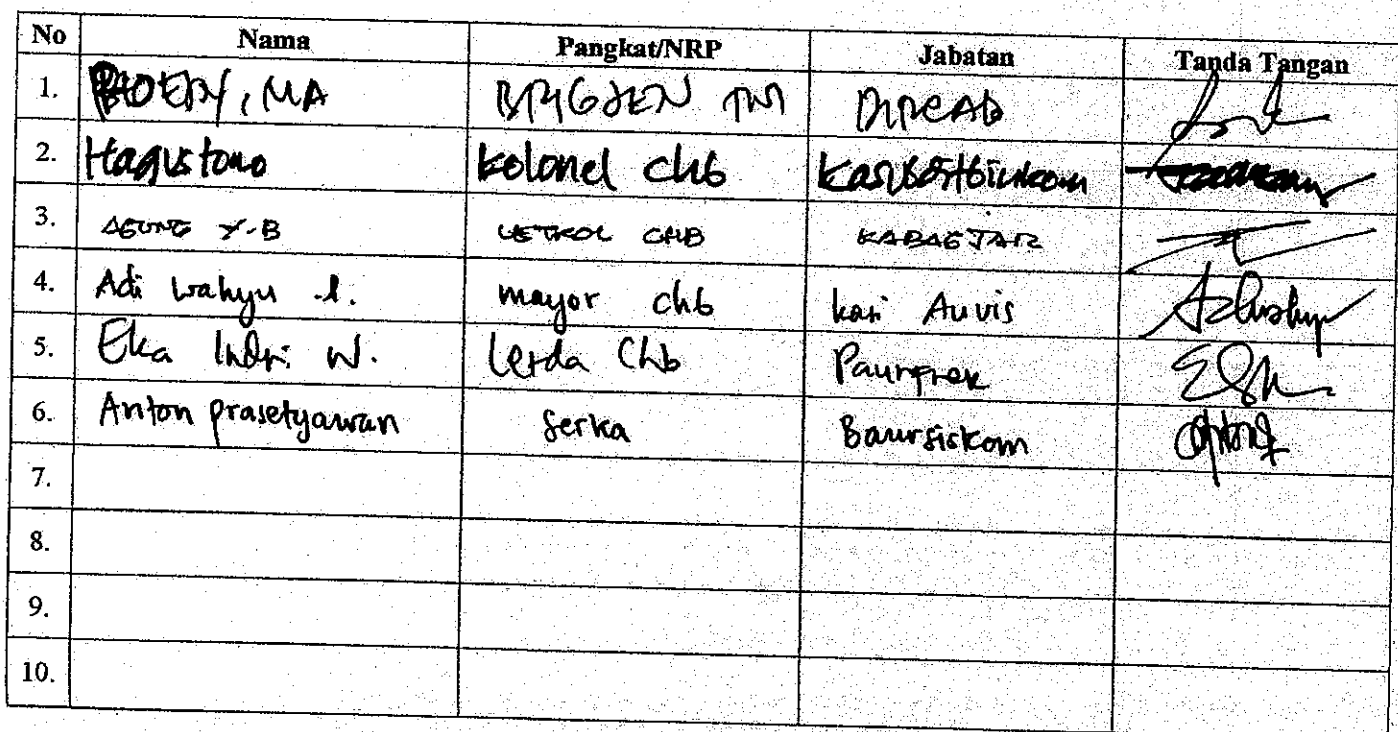 No Nama Pangkat/NRP Jabatan Tanda Tangan
1. , MA BRIGJEN TNI
2. Hagustono Kolonel Chb
3. AGUNG Y.B LETKOL CHB KABAGJAR
4. Adi Wahyu .l. mayor chb kasi Auvis
5. Eka Indri W. Letda Chb
6. Anton prasetyawan Serka Baursiskom
7.
8.
9.
10.